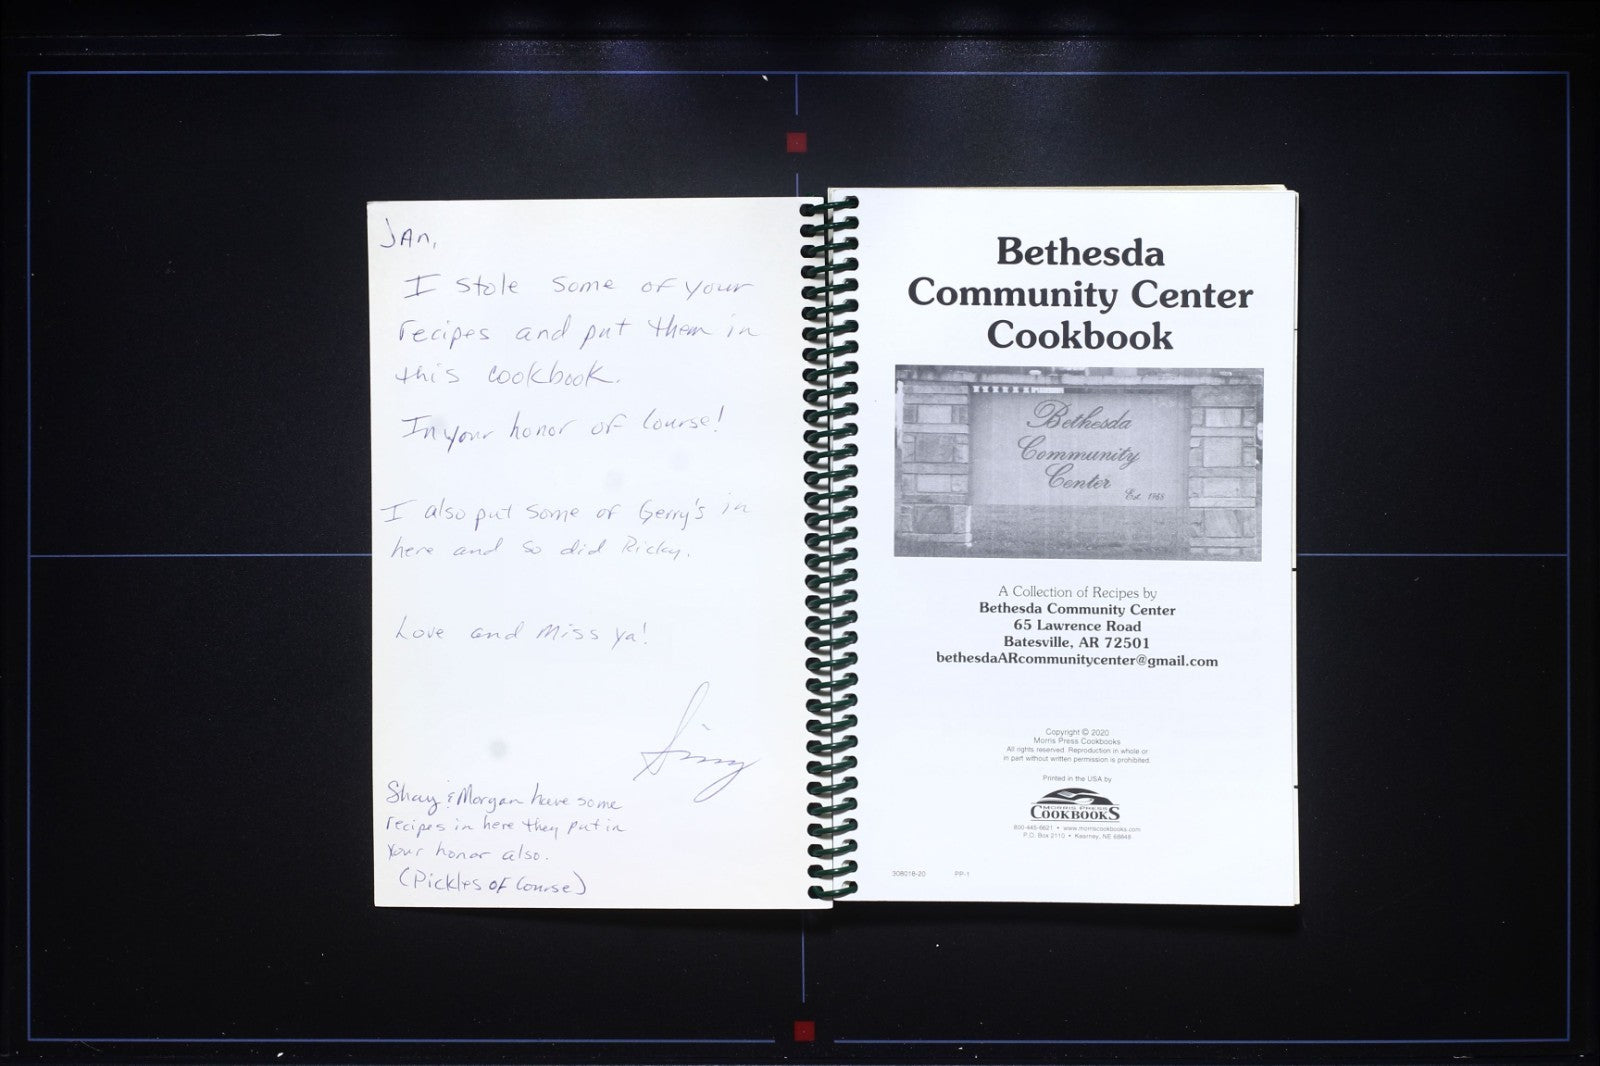 JAn,
I stole some of your
recipes and put them in
this cookbook.
In your honor of Course!
I also put some of Gerry's in
here and so did Ricky.
Love and Miss ya!
Shay & Morgan have some
recipes in here they put in
Your honor also.
(Pickles of Course)
Bethesda
Community Center
Cookbook
Bethesda
Community
Center
Est. 1968
A Collection of Recipes by
Bethesda Community Center
65 Lawrence Road
Batesville, AR 72501
bethesdaARcommunitycenter@gmail.com
Copyright © 2020
Morris Press Cookbooks
All rights reserved. Reproduction in whole or
in part without written permission is prohibited.
Printed in the USA by
MORRIS PRESS
COOKBOOKS
800-445-6621 • www.morriscookbooks.com
P.O. Box 2110 • Kearney, NE 68848
308018-20 PP-1